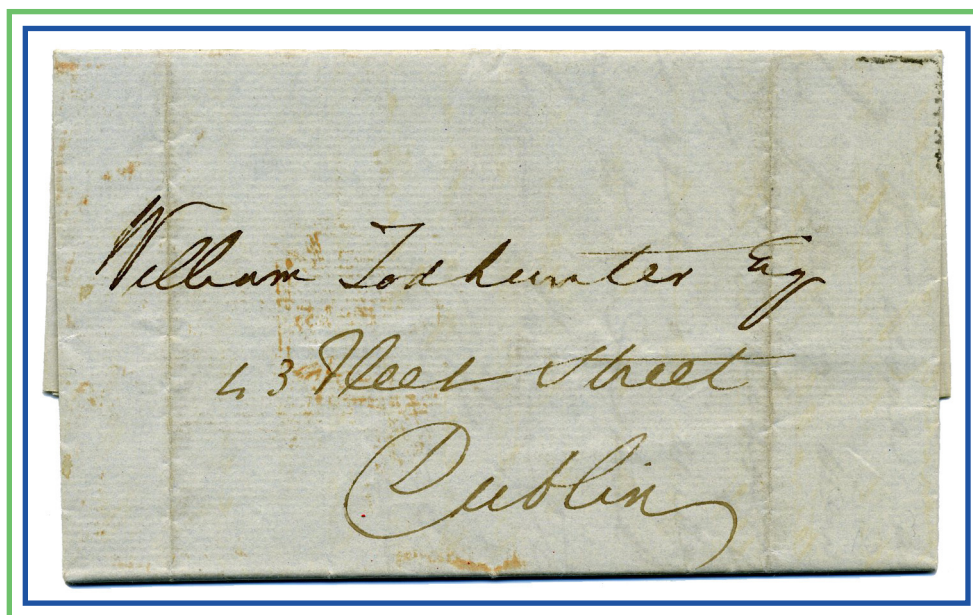 William Todhunter Esq
43 Fleet Street
Dublin